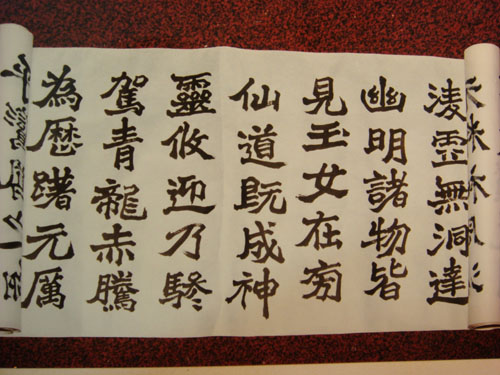 淩霊無洞達
幽明諸物皆
見玉女在旁
仙道既成神
靈攸迎乃驂
駕青龍赤騰
為歷躇元厲